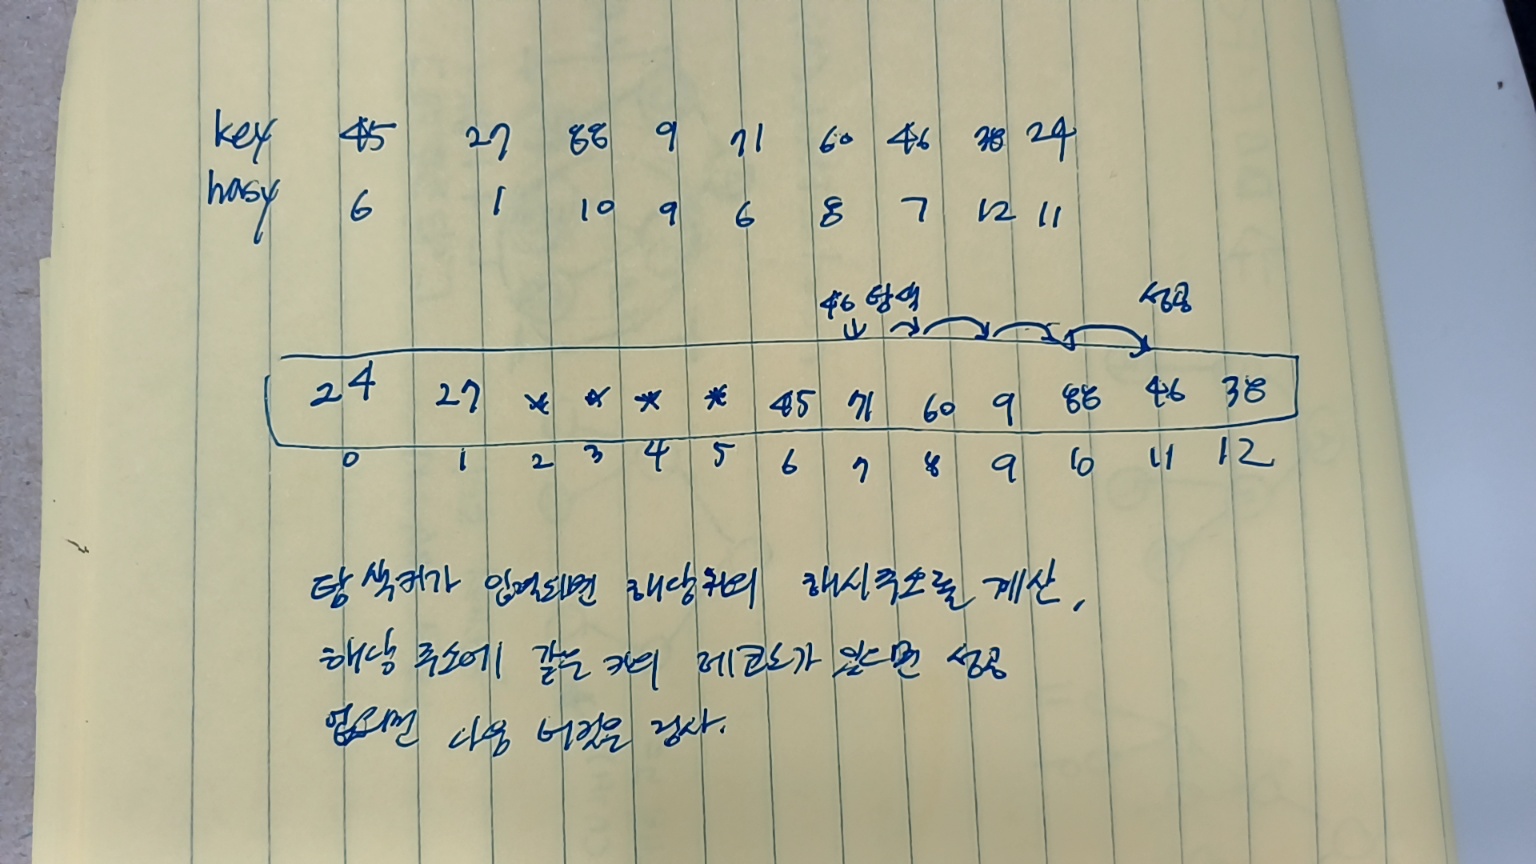 key 45 27 88 9 71 60 46 38 24
hasy 6 1 10 9 6 8 7 12 11
46 탐색 성공
24 27 * * * * 45 71 60 9 88 46 38
0 1 2 3 4 5 6 7 8 9 10 11 12
탐색키가 입력되면 해당키의 해시주소를 계산,
해당 주소에 같은 키의 레코드가 있으면 성공
없으면 다음 버킷은 검사.